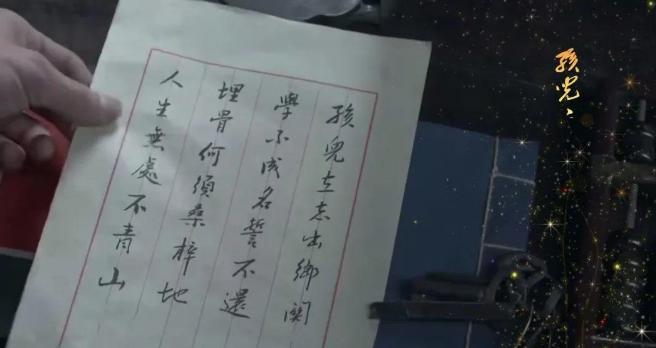 孩兒立志出鄉関
學不成名誓不還
埋骨何須桑梓地
人生無處不青山
孩兒